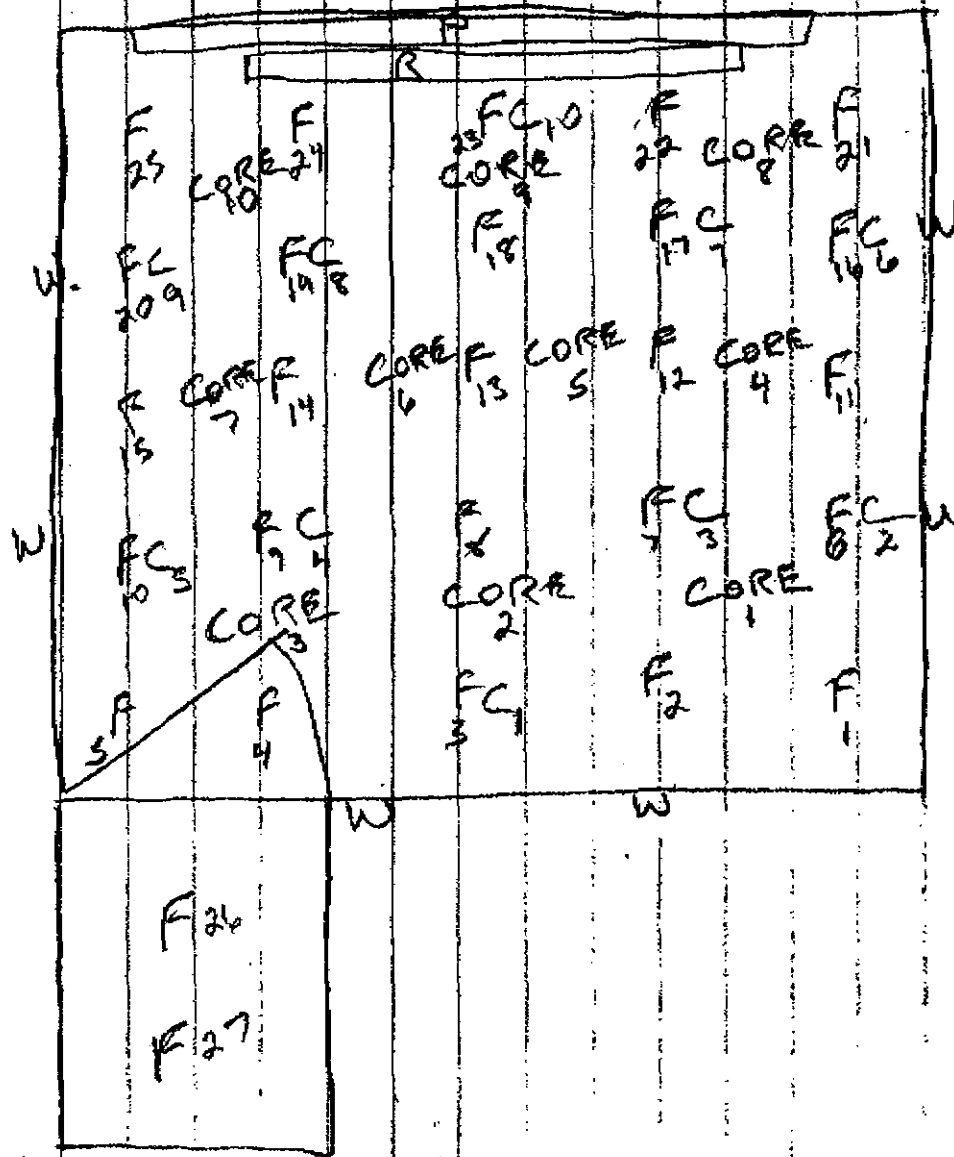 R
F 25
CORE 10
F 24
23 F C 10
CORE 9
F 22
CORE 8
F 21
W.
F C 20 9
F C 19 8
F 18
F C 17 7
F C 16 6
W
F 15
CORE 7
F 14
CORE 6
F 13
CORE 5
F 12
CORE 4
F 11
W
F C 10 5
F C 9 4
F 8
F C 7 3
F C 6 2
W
CORE 3
CORE 2
CORE 1
F 5
F 4
F C 3 1
F 2
F 1
W
W
F 26
F 27